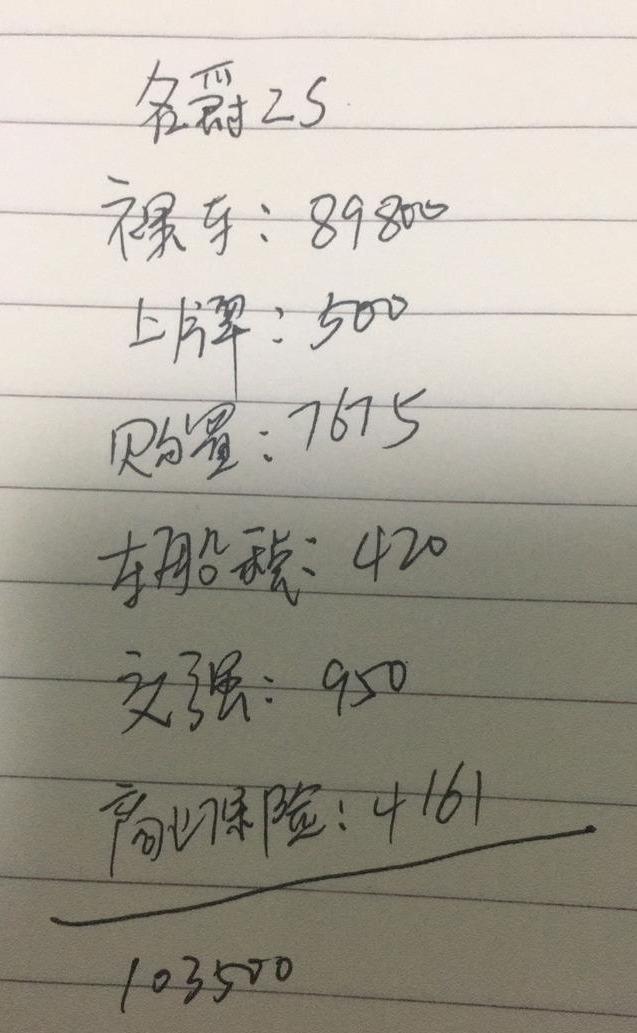 名爵ZS
裸车：89800
上牌：500
购置：7675
车船税：420
交强：950
商业保险：4161
103500